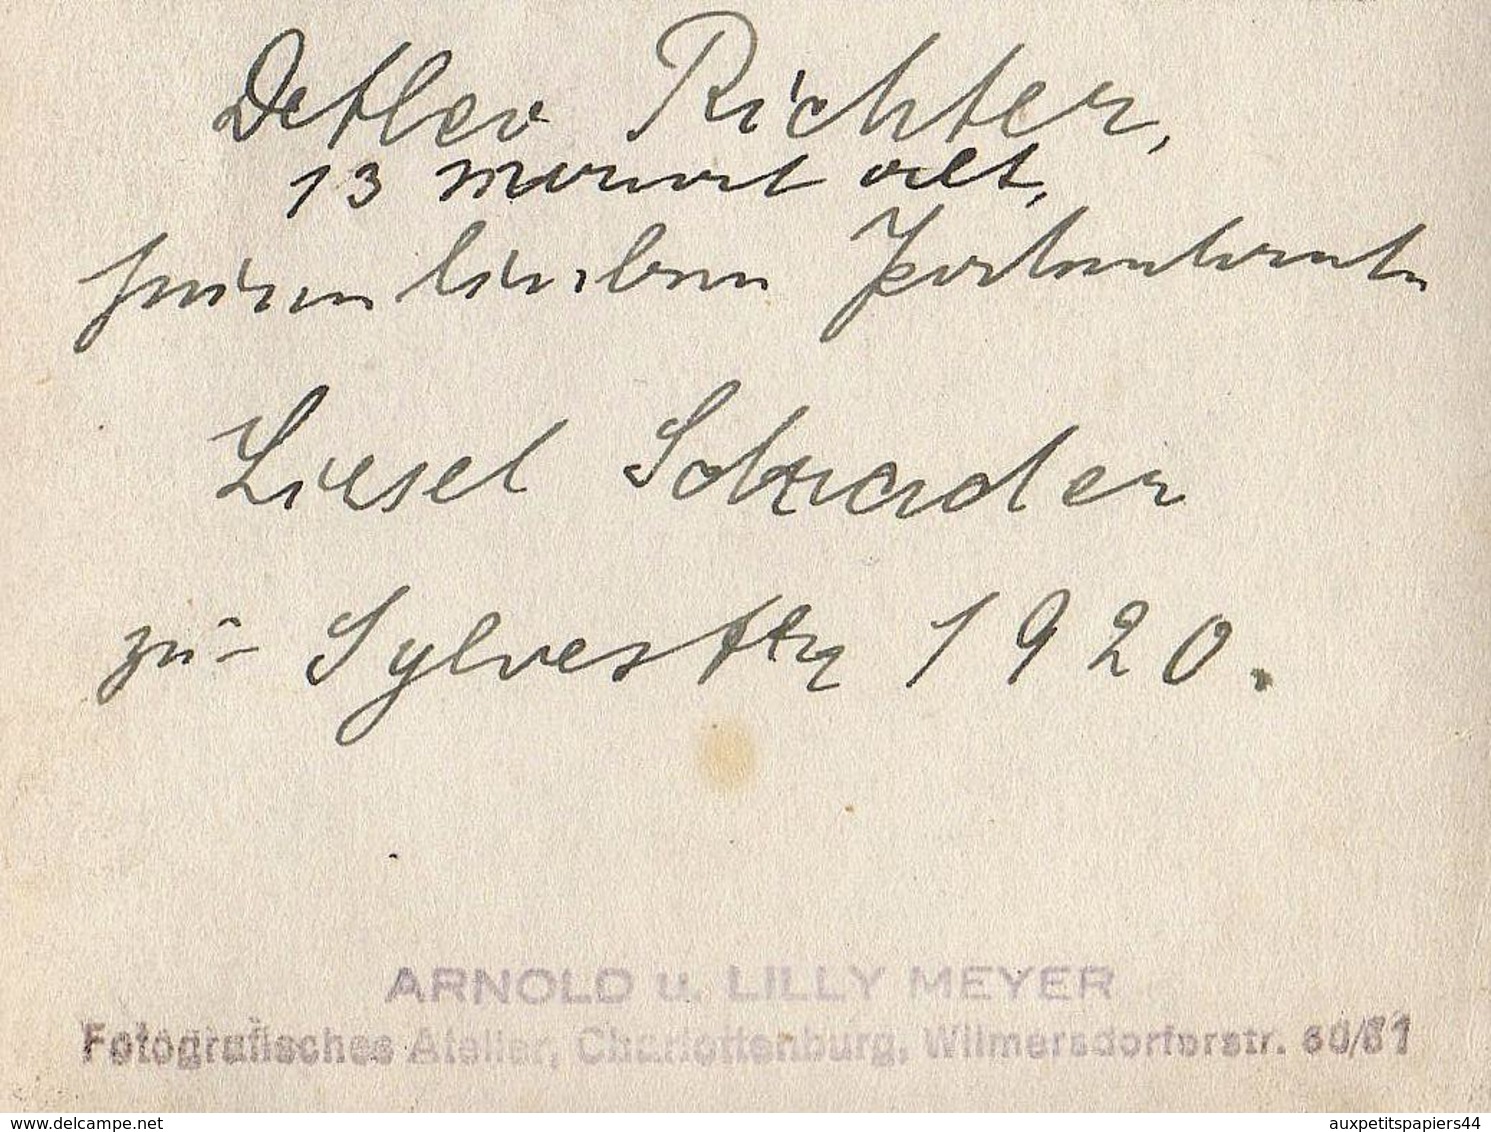 Detlev Richter,
13 Monat alt,
seiner lieben Patentante
Liesel Schrader
zu Sylvester 1920.
ARNOLD u. LILLY MEYER
Fotografisches Atelier, Charlottenburg, Wilmersdorferstr. 60/61
delcampe.net
auxpetitspapiers44